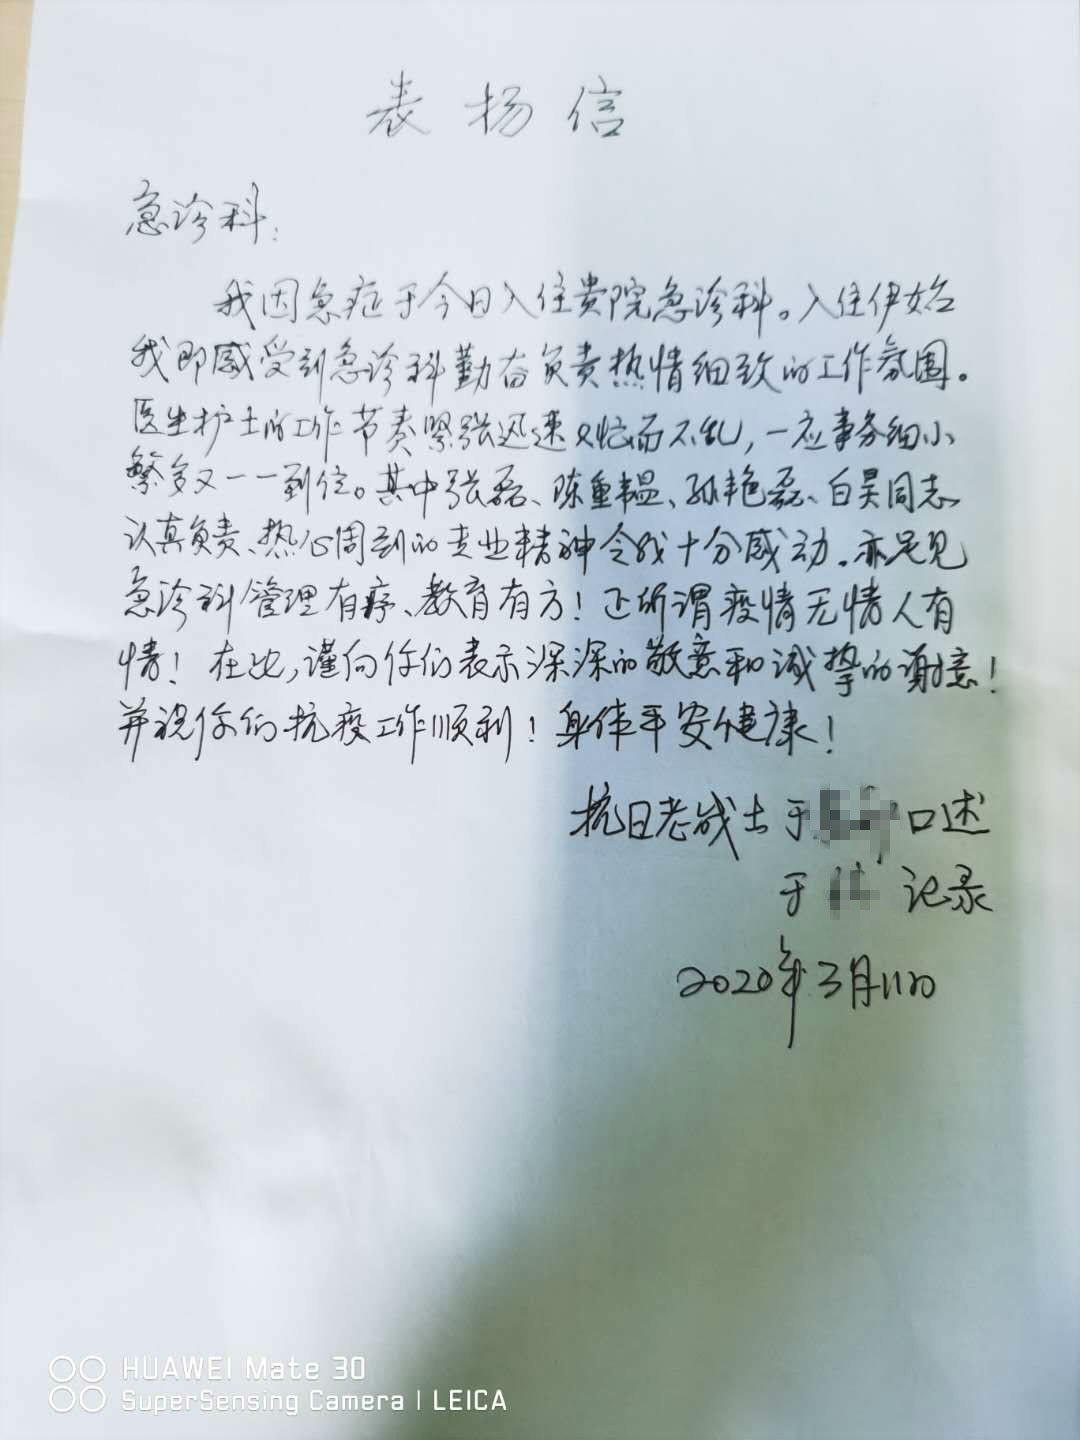 表扬信
急诊科:
我因急症于今日入住贵院急诊科。入住伊始
我即感受到急诊科勤奋负责热情细致的工作氛围。
医生护士的工作节奏紧张迅速又忙而不乱,一应事务细小
繁多又一一到位。其中张磊、陈重韫、孙艳磊、白昊同志
认真负责、热心周到的专业精神令我十分感动。亦足见
急诊科管理有序、教育有方!正所谓疫情无情人有
情!在此,谨向你们表示深深的敬意和诚挚的谢意!
并祝你们抗疫工作顺利!身体平安健康!
抗日老战士于 口述
于 记录
2020年3月11日
HUAWEI Mate 30
SuperSensing Camera | LEICA